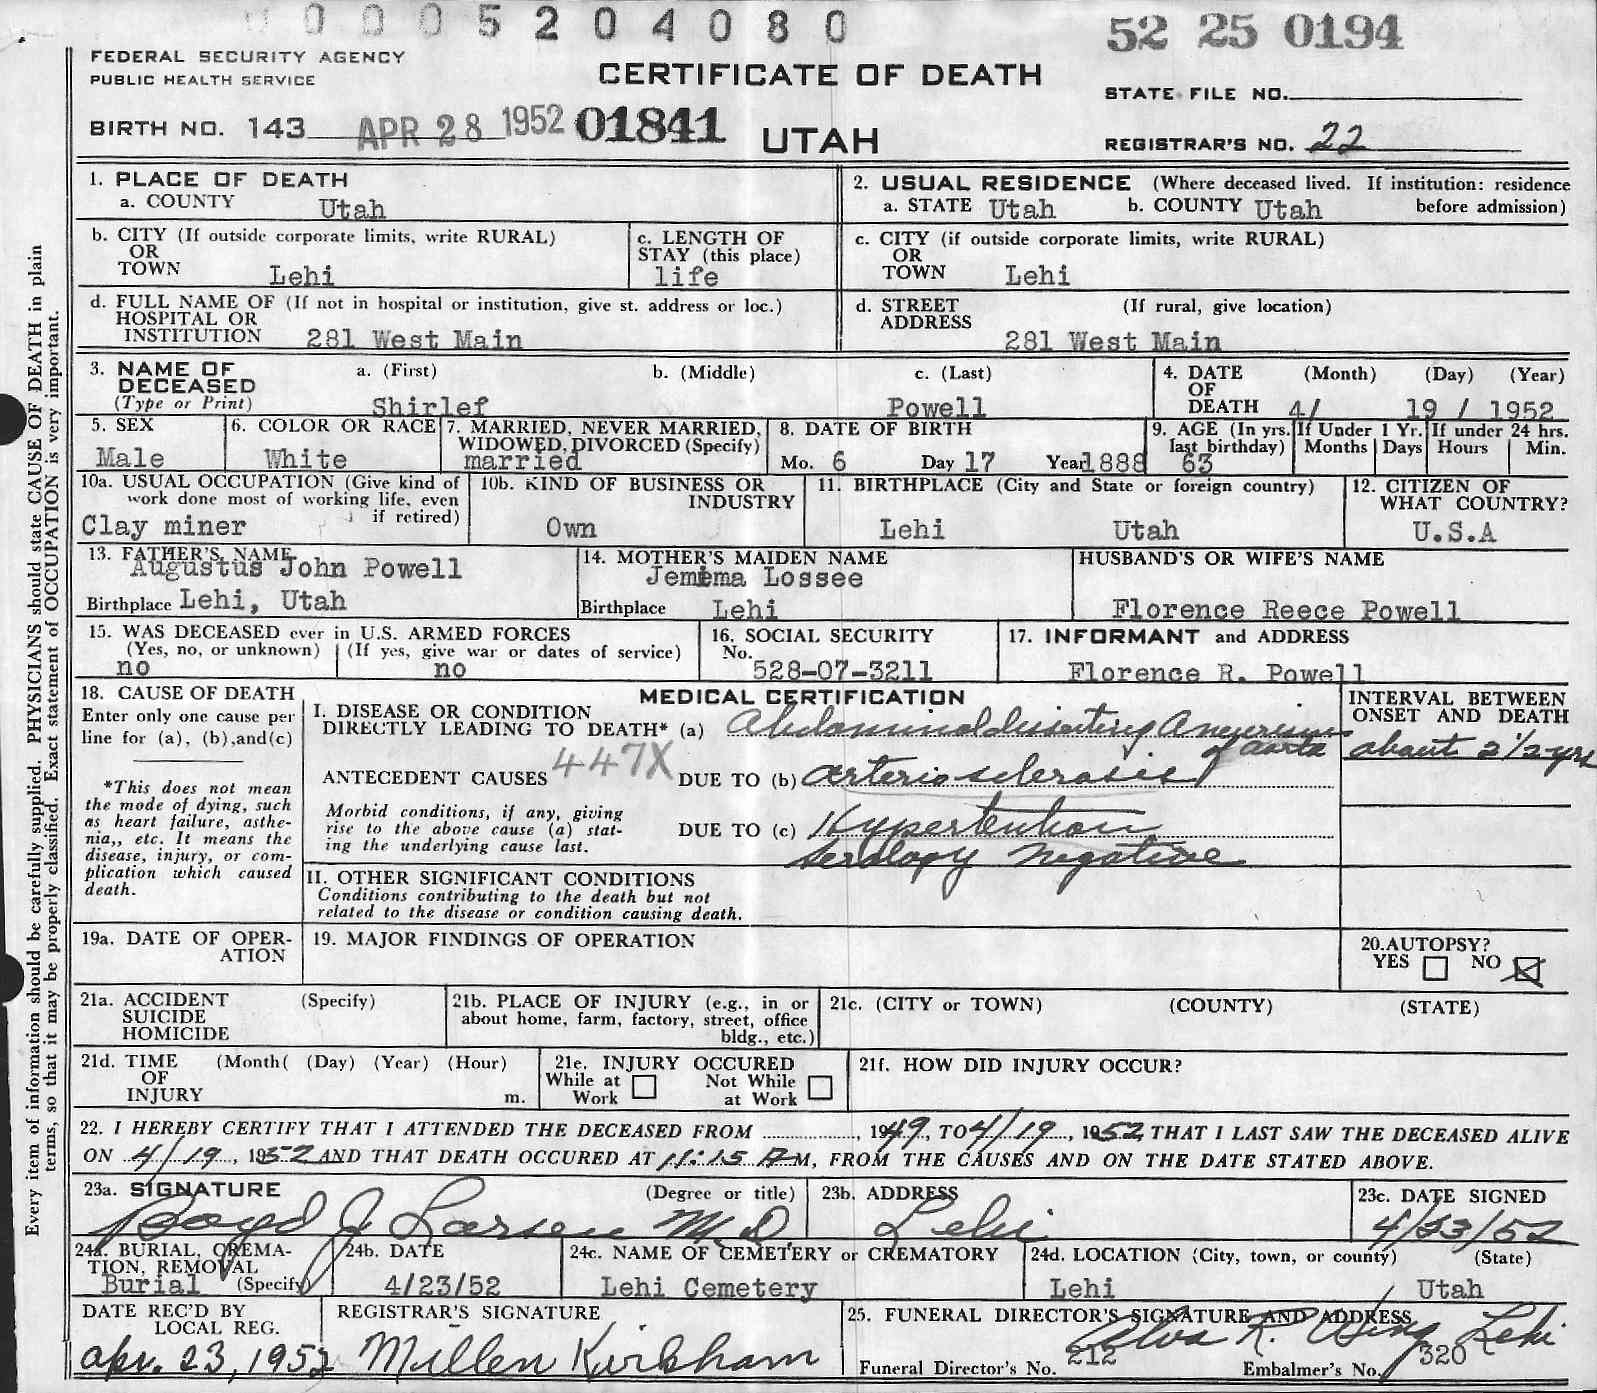 0 0 0 5 2 0 4 0 8 0
52 25 0194
FEDERAL SECURITY AGENCY
PUBLIC HEALTH SERVICE
CERTIFICATE OF DEATH
STATE FILE NO.
BIRTH NO. 143 APR 28 1952 01841 UTAH
REGISTRAR'S NO. 22
Every item of information should be carefully supplied. PHYSICIANS should state CAUSE OF DEATH in plain
terms, so that it may be properly classified. Exact statement of OCCUPATION is very important.
1. PLACE OF DEATH
a. COUNTY Utah
2. USUAL RESIDENCE (Where deceased lived. If institution: residence
a. STATE Utah b. COUNTY Utah before admission)
b. CITY (If outside corporate limits, write RURAL)
OR
TOWN Lehi
c. LENGTH OF
STAY (this place)
life
c. CITY (if outside corporate limits, write RURAL)
OR
TOWN Lehi
d. FULL NAME OF (If not in hospital or institution, give st. address or loc.)
HOSPITAL OR
INSTITUTION 281 West Main
d. STREET (If rural, give location)
ADDRESS
281 West Main
3. NAME OF a. (First) b. (Middle) c. (Last)
DECEASED
(Type or Print) Shirlef Powell
4. DATE (Month) (Day) (Year)
OF
DEATH 4/ 19 / 1952
5. SEX
Male
6. COLOR OR RACE
White
7. MARRIED, NEVER MARRIED,
WIDOWED, DIVORCED (Specify)
married
8. DATE OF BIRTH
Mo. 6 Day 17 Year 1888
9. AGE (In yrs.
last birthday)
63
If Under 1 Yr.
Months Days
If under 24 hrs.
Hours Min.
10a. USUAL OCCUPATION (Give kind of
work done most of working life, even
if retired)
Clay miner
10b. KIND OF BUSINESS OR
INDUSTRY
Own
11. BIRTHPLACE (City and State or foreign country)
Lehi Utah
12. CITIZEN OF
WHAT COUNTRY?
U.S.A
13. FATHER'S NAME
Augustus John Powell
Birthplace Lehi, Utah
14. MOTHER'S MAIDEN NAME
Jemima Lossee
Birthplace Lehi
HUSBAND'S OR WIFE'S NAME
Florence Reece Powell
15. WAS DECEASED ever in U.S. ARMED FORCES
(Yes, no, or unknown) (If yes, give war or dates of service)
no no
16. SOCIAL SECURITY
No.
528-07-3211
17. INFORMANT and ADDRESS
Florence R. Powell
18. CAUSE OF DEATH
Enter only one cause per
line for (a), (b),and(c)
*This does not mean
the mode of dying, such
as heart failure, asthe-
nia,, etc. It means the
disease, injury, or com-
plication which caused
death.
MEDICAL CERTIFICATION
I. DISEASE OR CONDITION
DIRECTLY LEADING TO DEATH* (a) Abdominal dissecting Aneurism
of aorta
ANTECEDENT CAUSES 447X DUE TO (b) arteriosclerosis
Morbid conditions, if any, giving
rise to the above cause (a) stat-
ing the underlying cause last.
DUE TO (c) Hypertention
serology negative
II. OTHER SIGNIFICANT CONDITIONS
Conditions contributing to the death but not
related to the disease or condition causing death.
INTERVAL BETWEEN
ONSET AND DEATH
about 2 1/2 yrs
19a. DATE OF OPER-
ATION
19. MAJOR FINDINGS OF OPERATION
20.AUTOPSY?
YES NO
21a. ACCIDENT (Specify)
SUICIDE
HOMICIDE
21b. PLACE OF INJURY (e.g., in or
about home, farm, factory, street, office
bldg., etc.)
21c. (CITY or TOWN) (COUNTY) (STATE)
21d. TIME (Month( (Day) (Year) (Hour)
OF
INJURY m.
21e. INJURY OCCURED
While at Not While
Work at Work
21f. HOW DID INJURY OCCUR?
22. I HEREBY CERTIFY THAT I ATTENDED THE DECEASED FROM , 1949, TO 4/19, 1952, THAT I LAST SAW THE DECEASED ALIVE
ON 4/19, 1952 AND THAT DEATH OCCURED AT 11:15 A M, FROM THE CAUSES AND ON THE DATE STATED ABOVE.
23a. SIGNATURE (Degree or title)
Boyd J Larsen M.D.
23b. ADDRESS
Lehi
23c. DATE SIGNED
4/23/52
24a. BURIAL, CREMA-
TION, REMOVAL
Burial (Specify)
24b. DATE
4/23/52
24c. NAME OF CEMETERY or CREMATORY
Lehi Cemetery
24d. LOCATION (City, town, or county) (State)
Lehi Utah
DATE REC'D BY
LOCAL REG.
apr. 23, 1952
REGISTRAR'S SIGNATURE
Millen Kirkham
25. FUNERAL DIRECTOR'S SIGNATURE AND ADDRESS
Alva R. Wing Lehi
Funeral Director's No. 212 Embalmer's No. 320